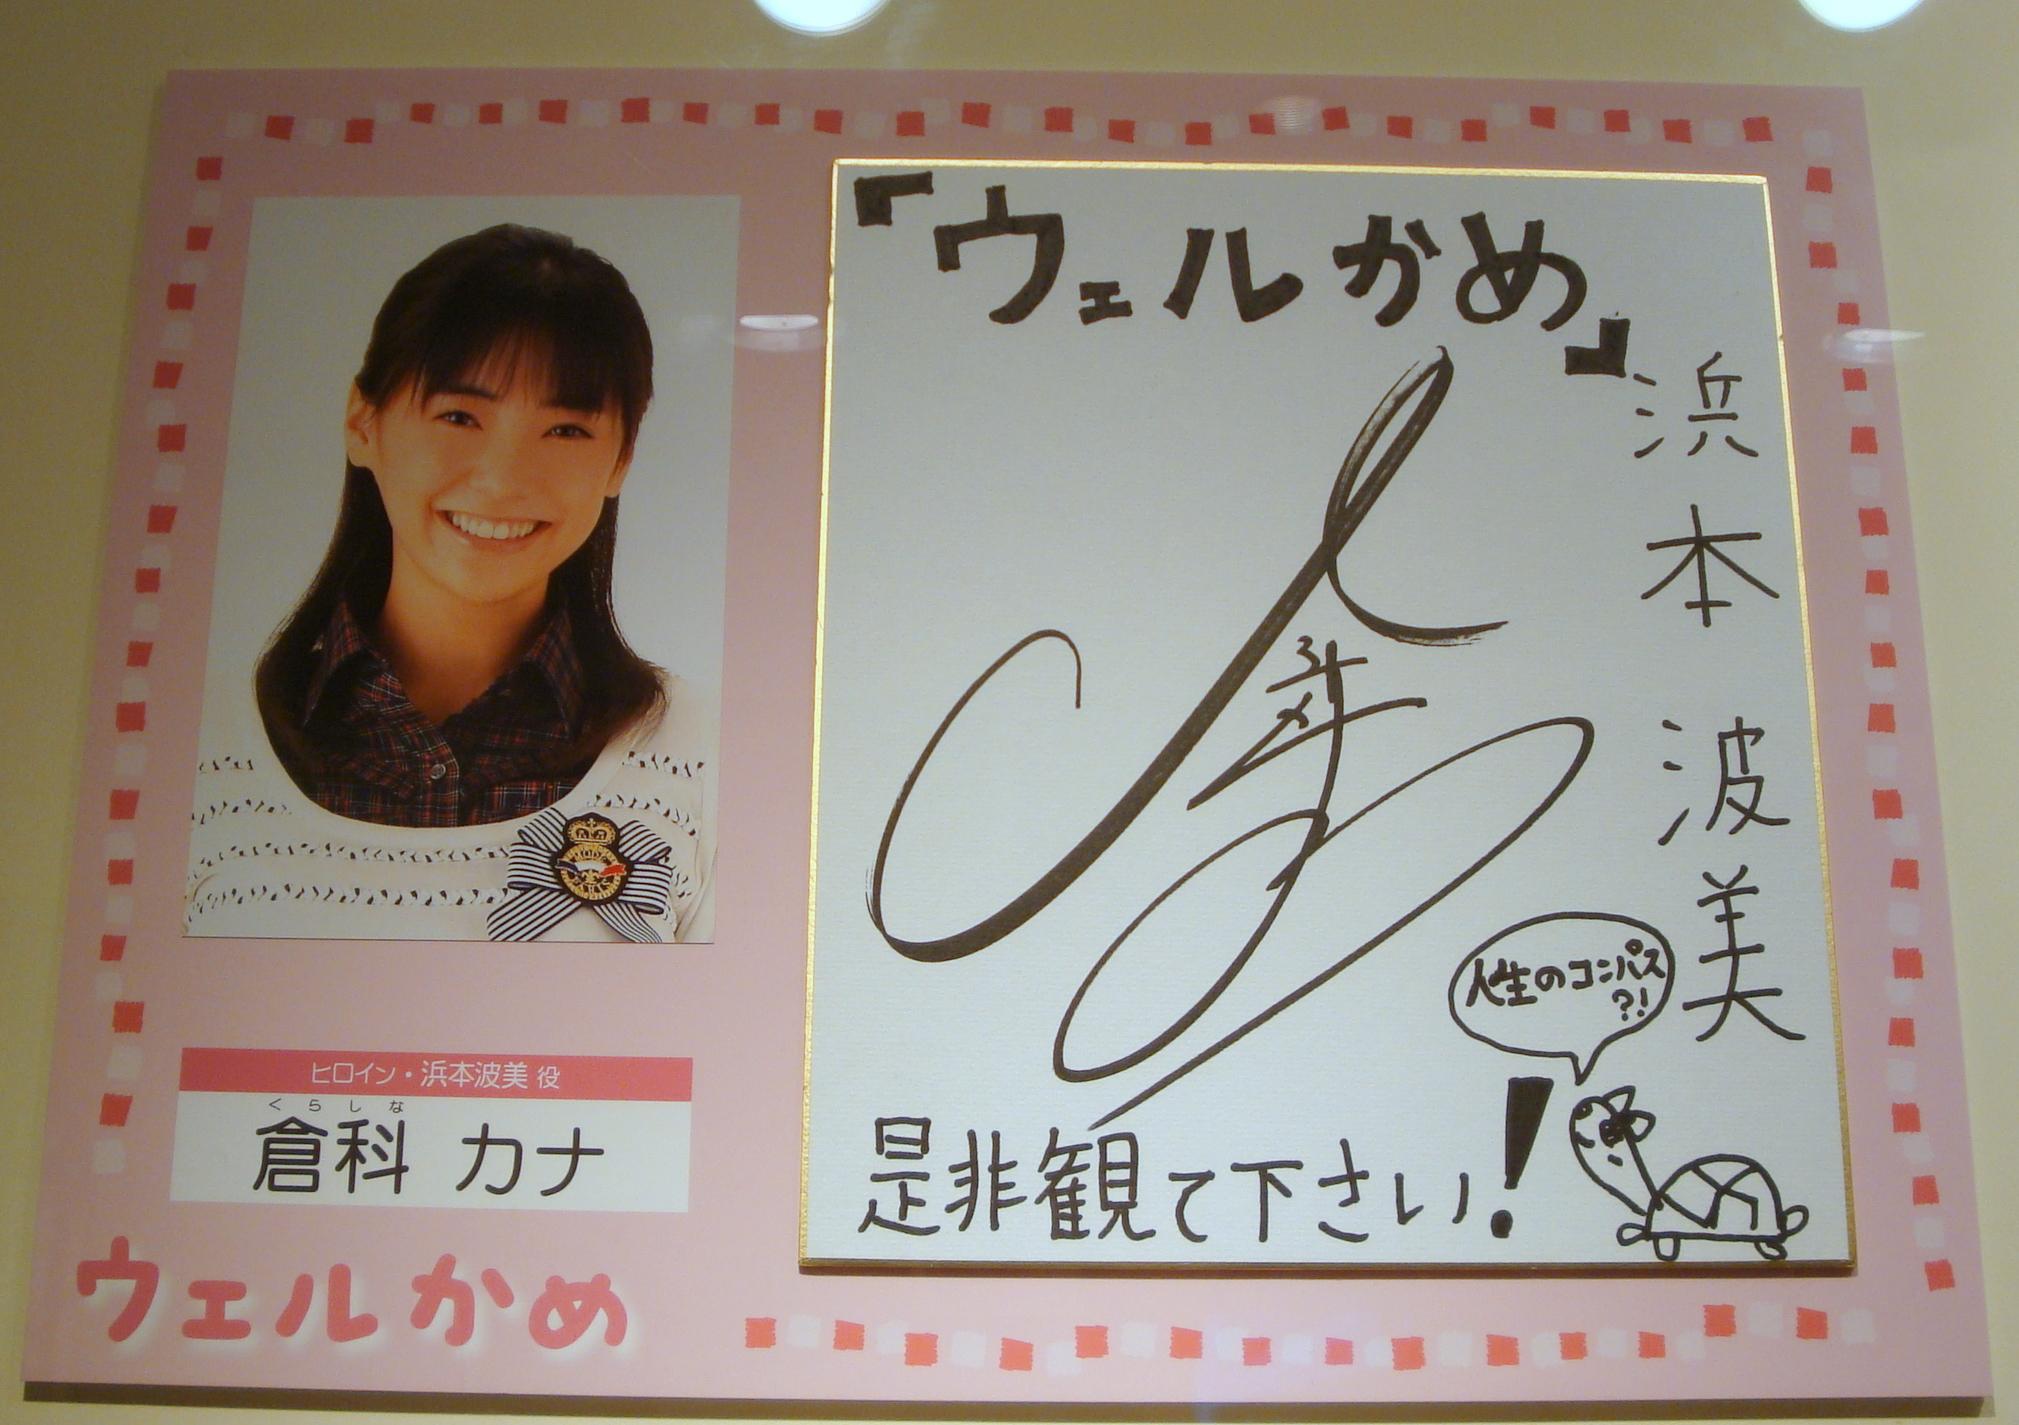 『ウェルかめ』
浜本波美
人生のコンパス
?!
是非観て下さい!
ヒロイン・浜本波美 役
くらしな
倉科 カナ
ウェルかめ